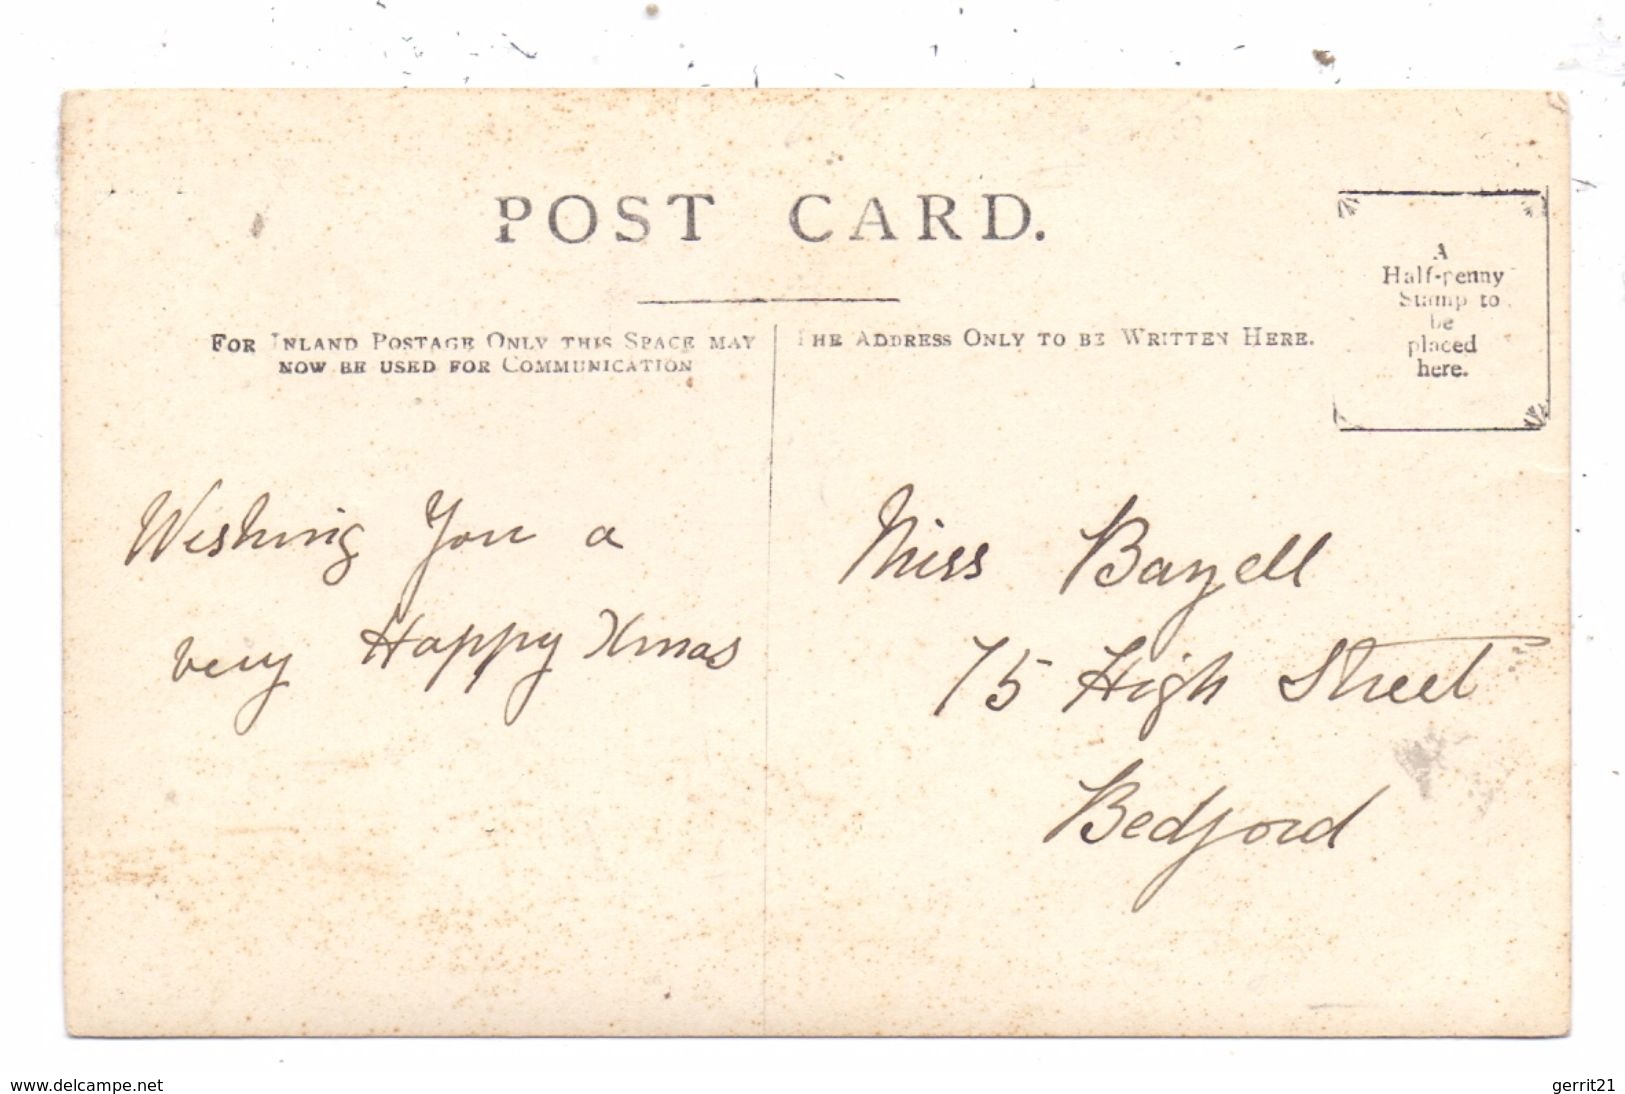 POST CARD.
A
Half-penny
Stamp to
be
placed
here.
FOR INLAND POSTAGE ONLY THIS SPACE MAY
NOW BE USED FOR COMMUNICATION
THE ADDRESS ONLY TO BE WRITTEN HERE.
Wishing You a
very Happy Xmas
Miss Bazell
75 High Street
Bedford
www.delcampe.net
gerrit21